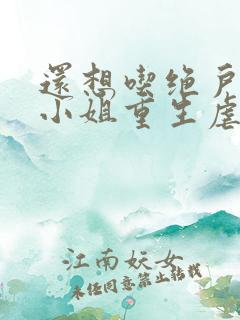 還想喫绝戶
小姐重生虐
江南妖女
未经同意禁止转载